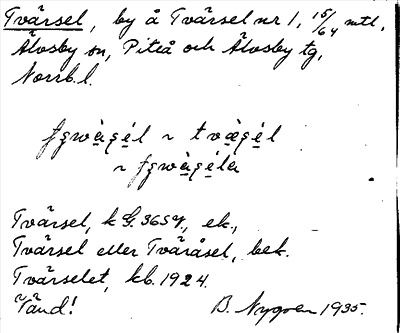 Tvärsel, by å Tvärsel nr 1, 15/64 mtl,
Älvsby sn, Piteå och Älvsby tg,
Norrb. l.
Tvärsel, k G. 3659, ek.,
Tvärsel eller Tväråsel, bek.
Tvärselet, kb. 1924.
Vänd! B. Nygren 1935.